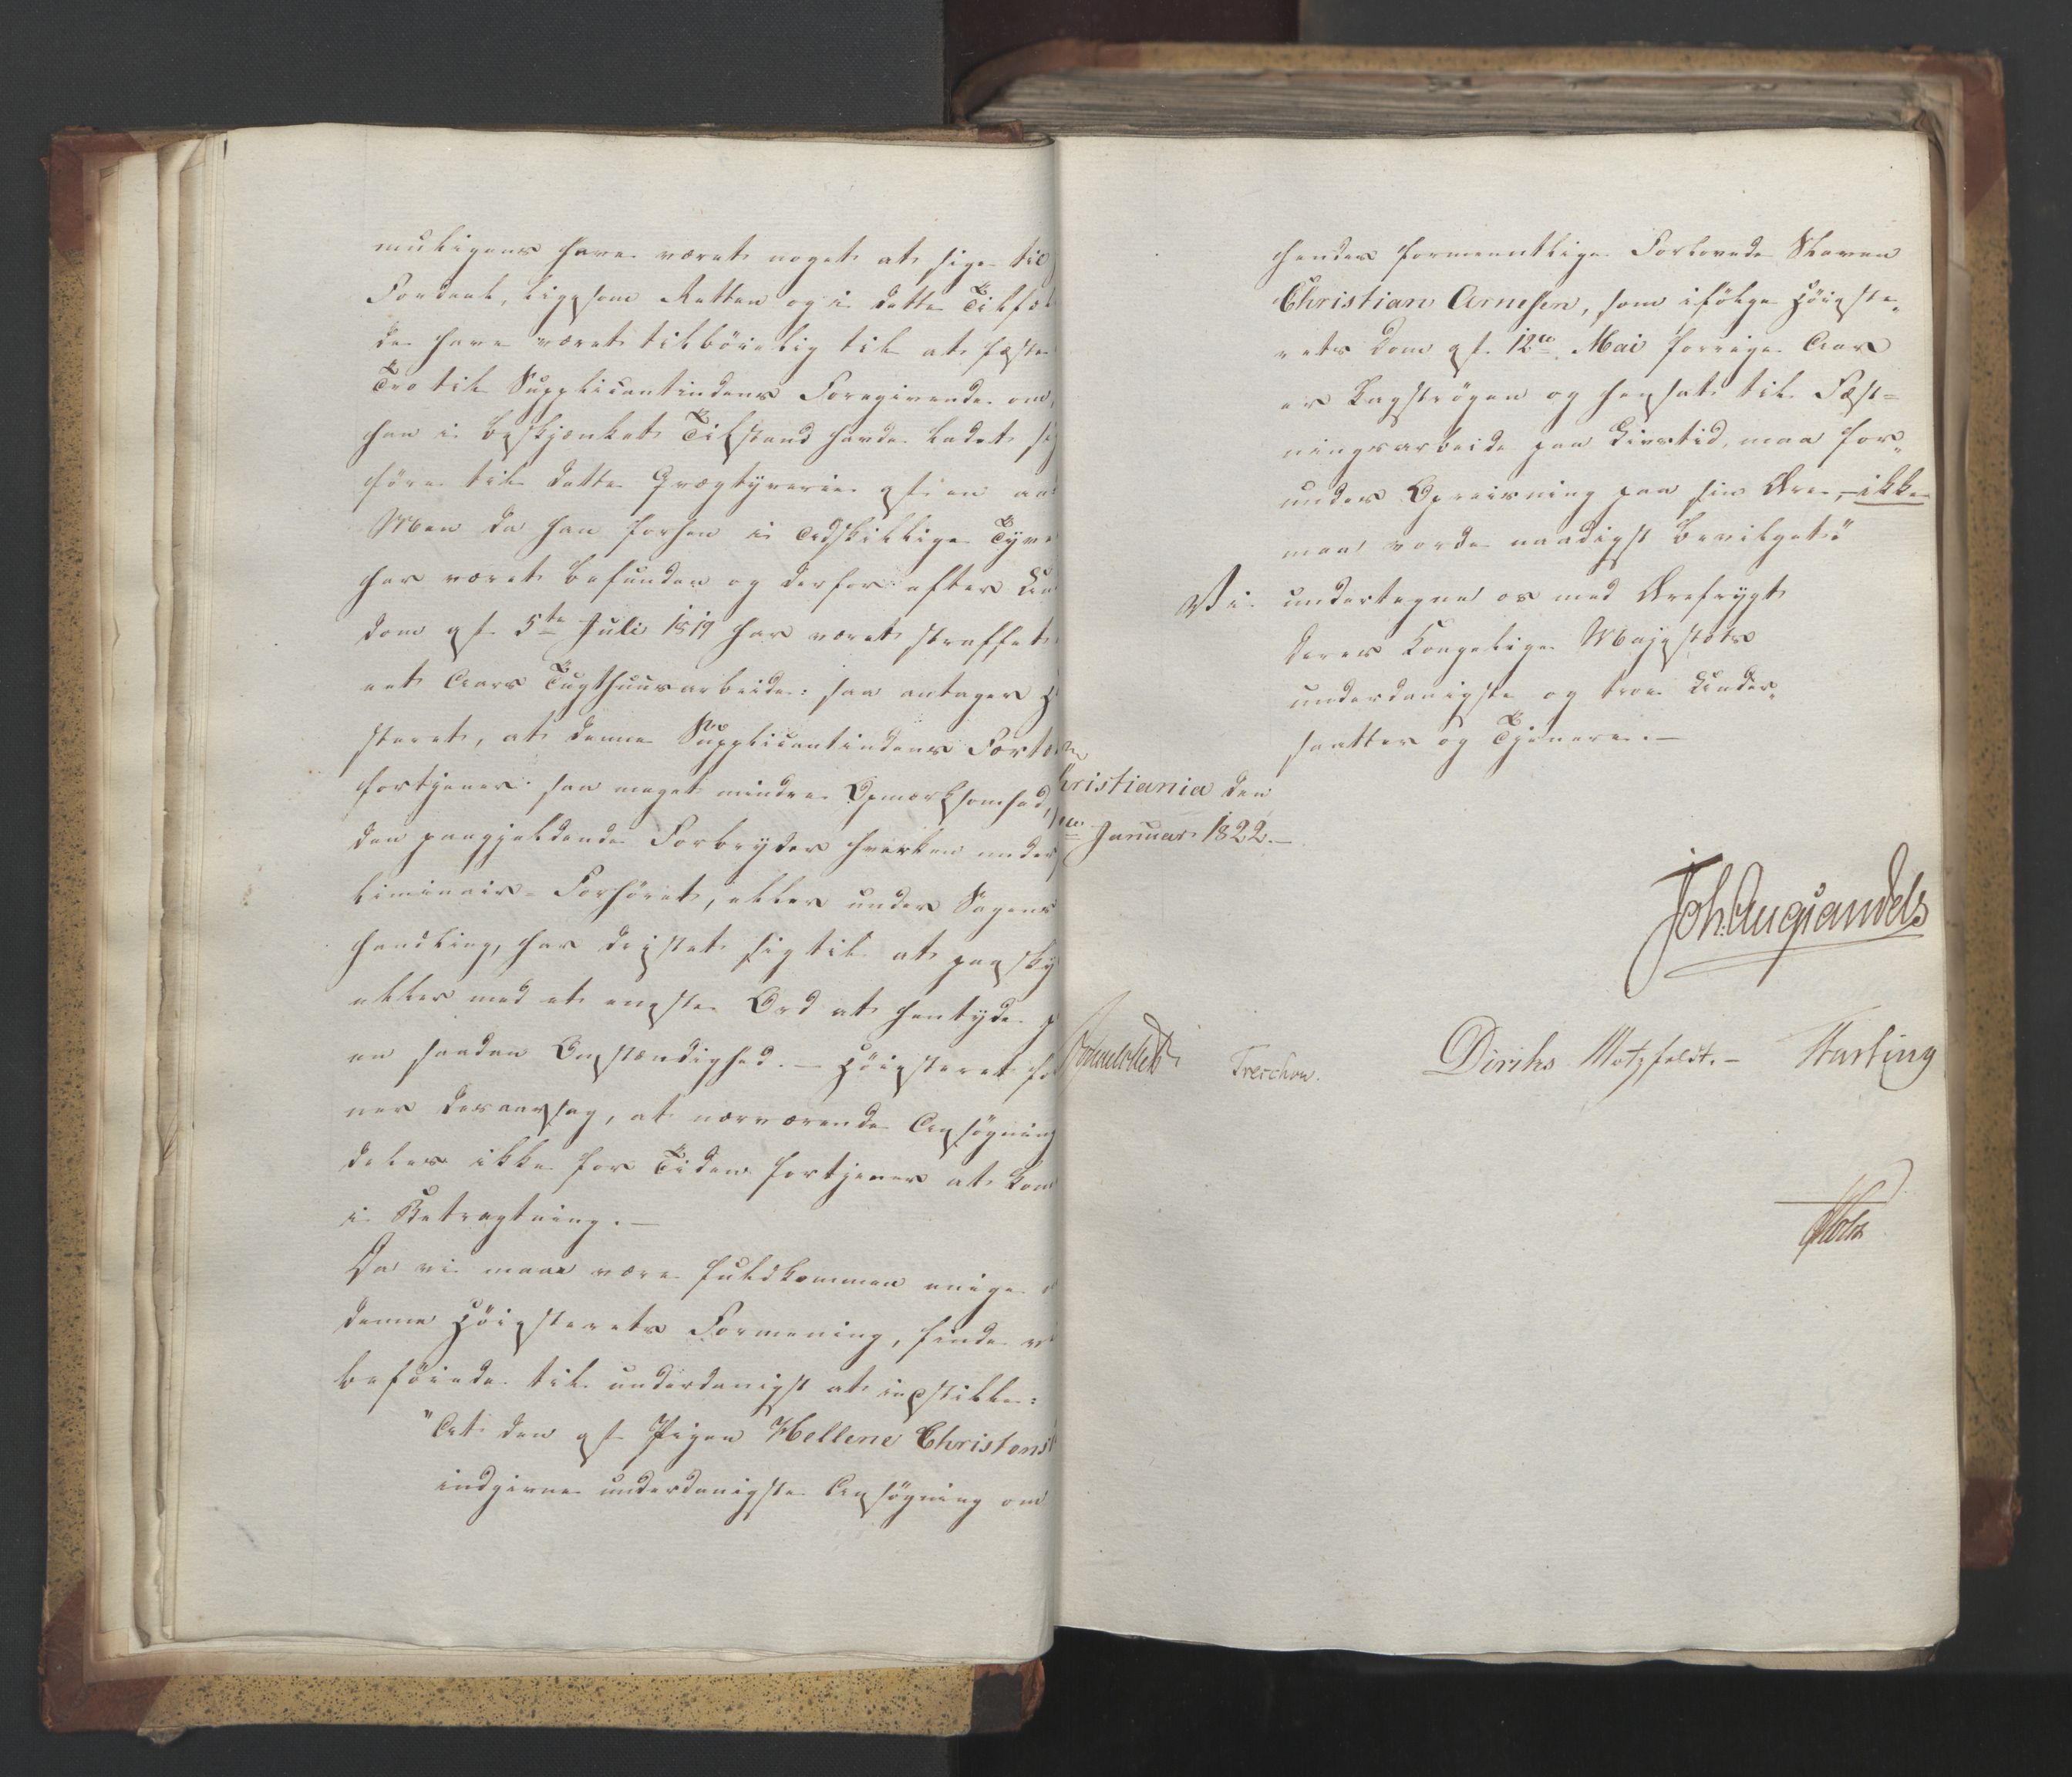 muligens have været noget at sige til
Fordeel, ligesom Retten og i dette Tilfæl
de have været tilböielig til at fæste
Tro til Supplicantindens Foregivende om,
han i beskjænket Tilstand havde ladet sig
före til dette Qvægtyverie
Men da han forhen i adskillige Tyve
har været befunden og derfor efter Un
dom af 5te Juli 1819 har været straffet
eet Aars Tugthuusarbeide: saa antager H
steret, at denne Supplicantindens Fort
fortjener saa meget mindre Opmærksomhed,
den paagjældende Forbryder hverken under
liminair-Forhöret, eller under Sagens
handling, har dristet sig til at paasky
eller med et eneste Ord at hentyde p
en saadan Omstændighed. – Höiesteret for
ner desaarsag, at nærværende Ansögning
deles ikke for Tiden fortjener at kom
i Betragtning. –
Da vi maae være fuldkommen enige
denne Höiesterets Formening, finde vi
beföiede til underdanigst at indstille:
"At den af Pigen Hellene Christens
indgivne underdanigste Ansögning om
hendes formeentlige Forlovede Slaven
Christian Arnessen, som ifölge Höieste-
rets Dom af 12te Mai forrige Aar
er kagströgen og hensat til Fæst=
ningsarbeide paa Livstid, maa for-
undes Opreisning paa sin Ære, – ikke
maa vorde naadigst bevilget."
Vi undertegne os med Ærefrygt
Deres Kongelige Majestæts
underdanigste og troe Under-
saatter og Tjenere. –
hristiania den
Januar 1822. –
Joh. Aug. Sandels
Sommerhielm
Treschow.
Diriks
Motzfeldt. –
Fasting
Holst